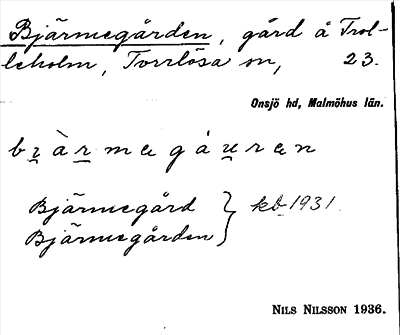 Bjärmegården, gård å Trol-
leholm, Torrlösa sn, 23.
Onsjö hd, Malmöhus län.
bi̯àr̯megåu̯ren
Bjärmegård } kb 1931.
Bjärmegården
NILS NILSSON 1936.